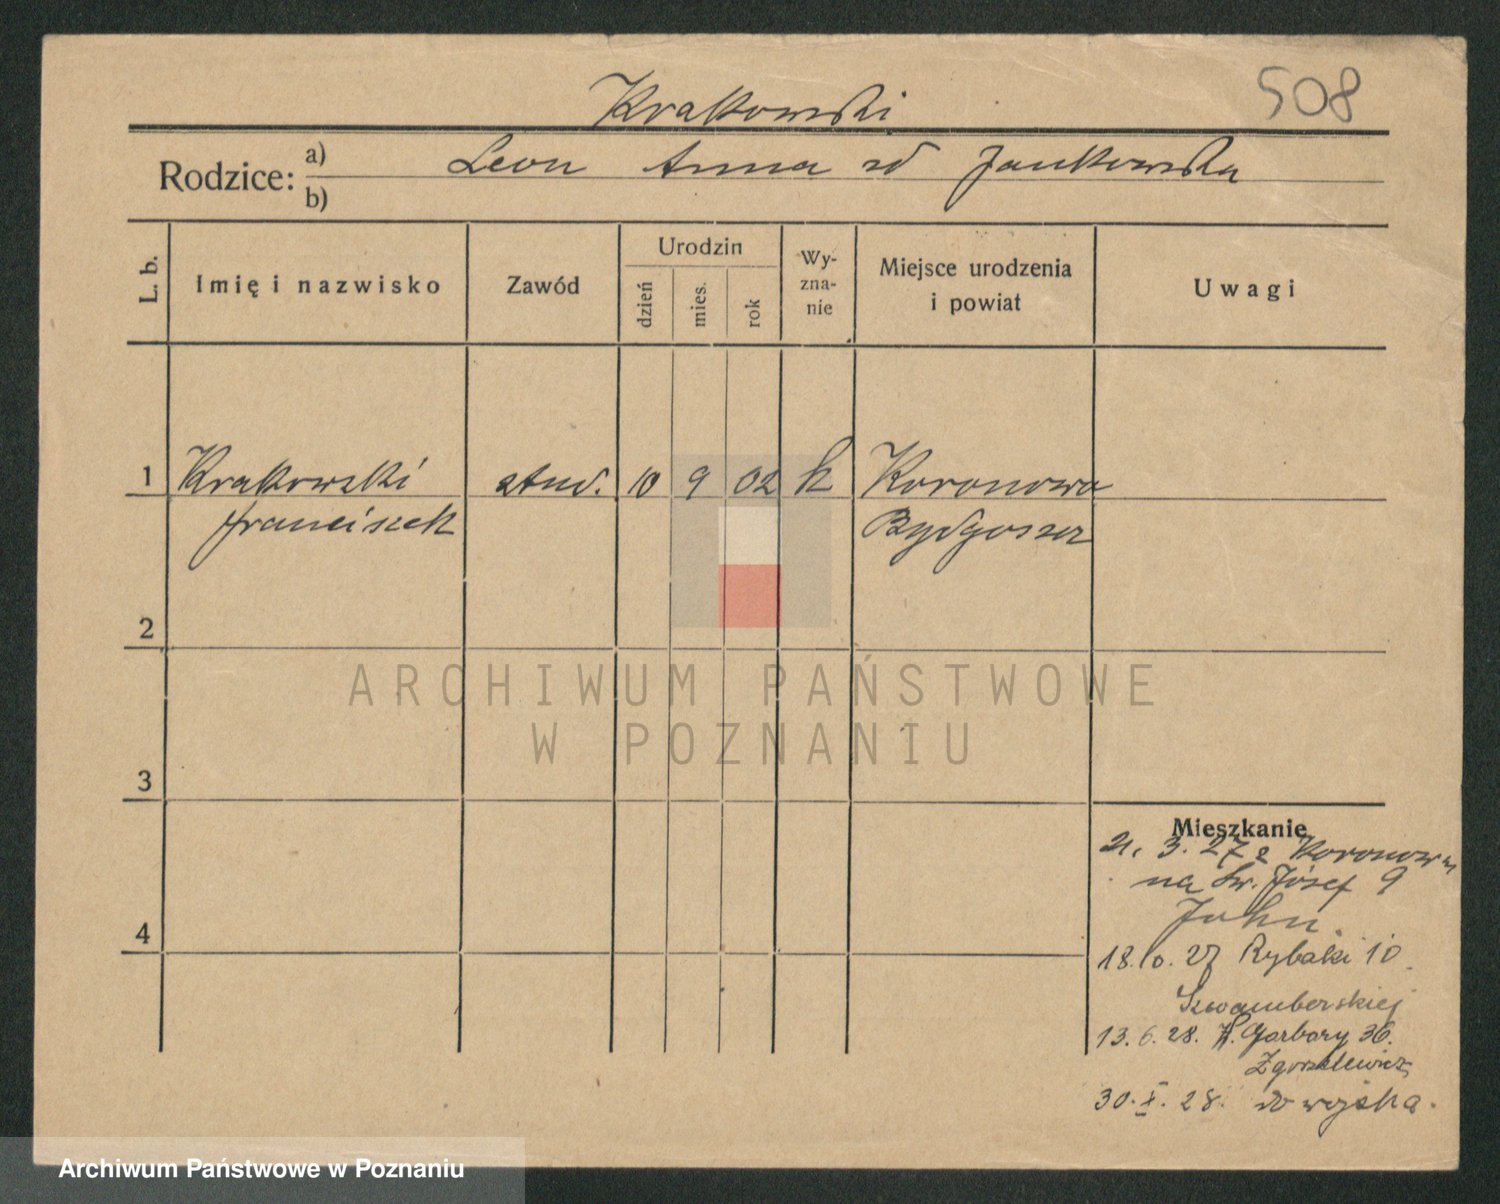 508
Krakowski
Rodzice: a) Leon Anna zd Jankowska
b)
L. b. Imię i nazwisko Zawód Urodzin dzień mies. rok Wy-zna-nie Miejsce urodzenia i powiat Uwagi
1 Krakowski stud. 10 9 02 k Koronowo
Franciszek Bydgoszcz
2
ARCHIWUM PAŃSTWOWE
W POZNANIU
3
Mieszkanie
21. 3. 27 z Koronowa
na Św. Józef 9
John.
4
18.10.27 Rybaki 10
13.6.28. Garbary 36.
Zgorzelewicz
30.X.28. do wojska.
Archiwum Państwowe w Poznaniu